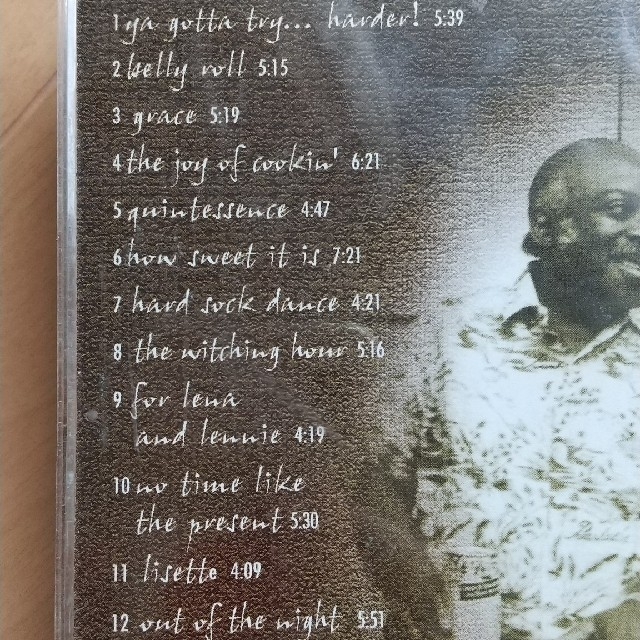 1 ya gotta try... harder! 5:39
2 belly roll 5:15
3 grace 5:19
4 the joy of cookin' 6:21
5 quintessence 4:47
6 how sweet it is 7:21
7 hard sock dance 4:21
8 the witching hour 5:16
9 for lena
and lennie 4:19
10 no time like
the present 5:30
11 lisette 4:09
12 out of the night 5:51